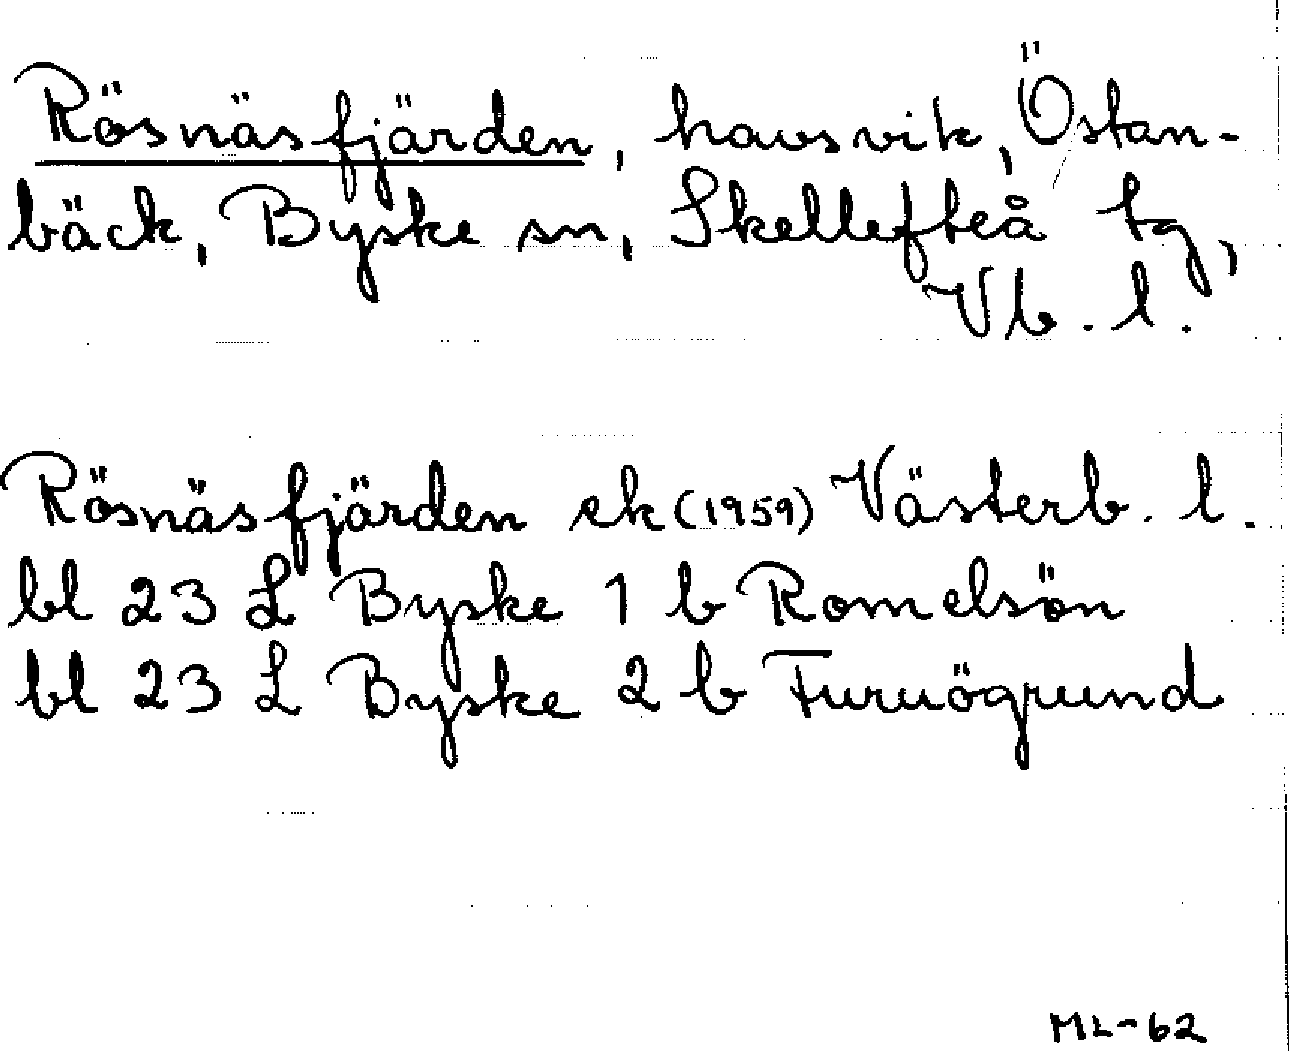 Rösnäsfjärden, havsvik, Östan-
bäck, Byske sn, Skellefteå tg,
Vb. l.
Rösnäsfjärden ek (1959) Västerb. l.
bl 23 L Byske 1 b Romelsön
bl 23 L Byske 2 b Furuögrund
ML-62